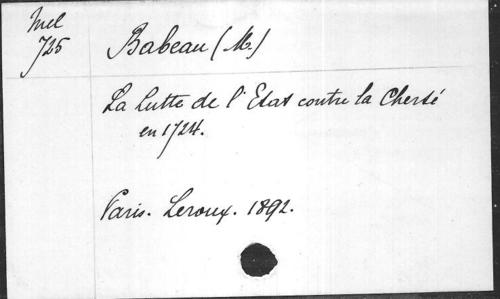 Mel
725
Babeau (M.)
La Lutte de l'Etat contre la Cherté
en 1724.
Paris. Leroux. 1892.